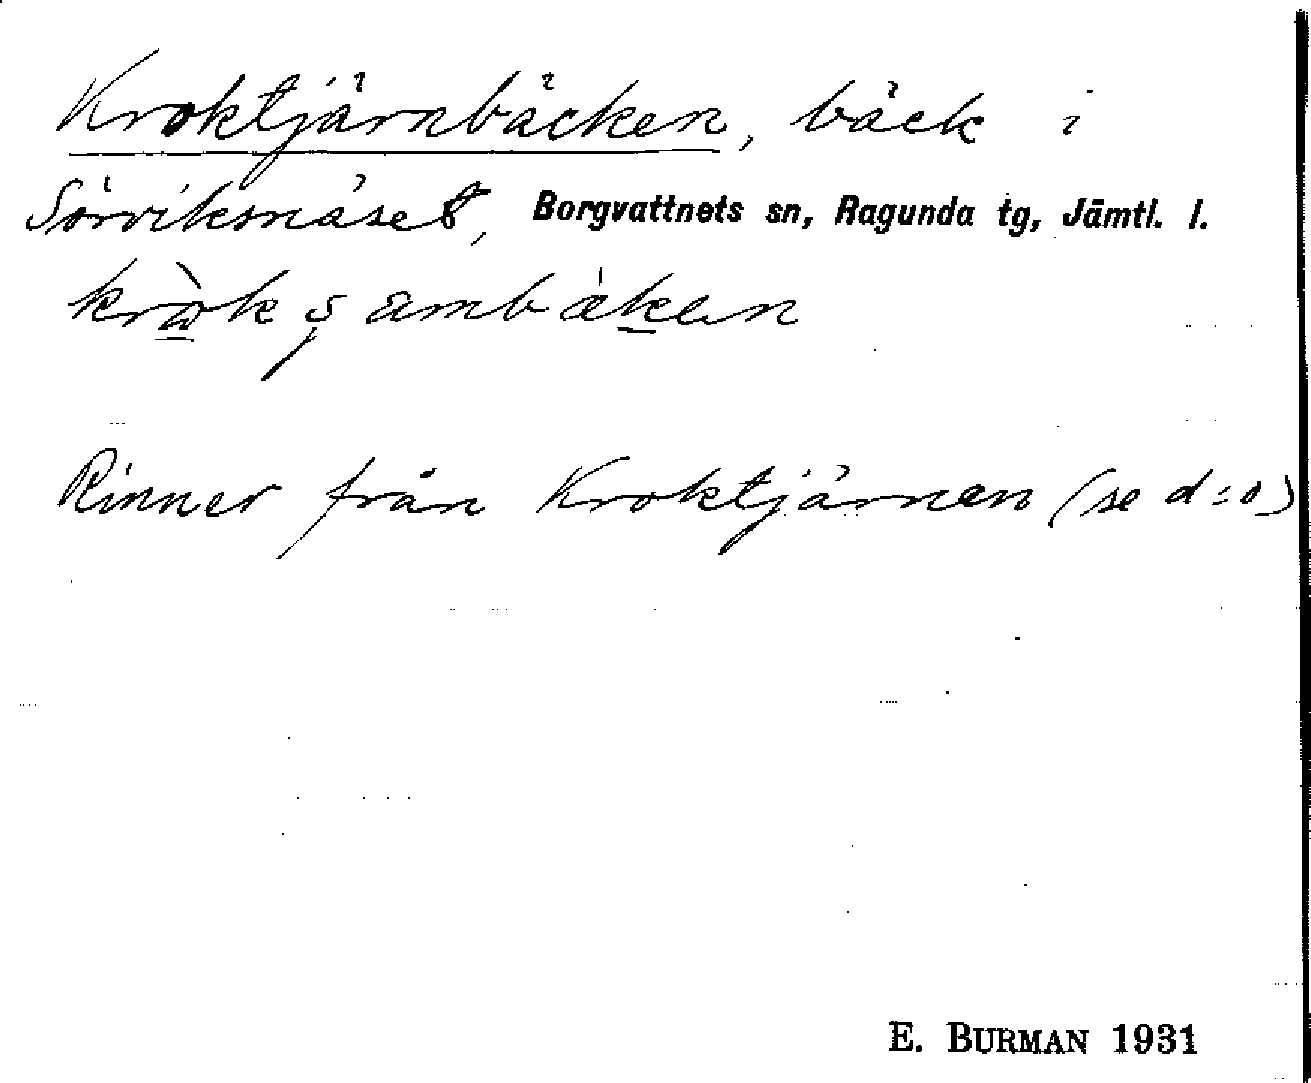 Kroktjärnbäcken, bäck i
Sörviksnäset, Borgvattnets sn, Ragunda tg, Jämtl. l.
Rinner från Kroktjärnen (se d:o)
E. BURMAN 1931